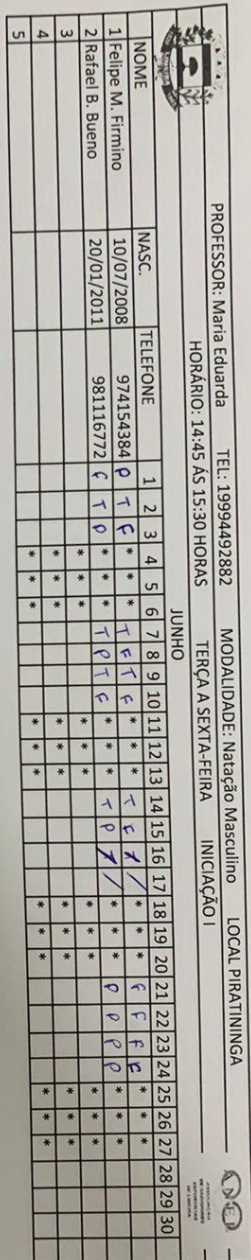 PROFESSOR: Maria Eduarda TEL: 19994492882 MODALIDADE: Natação Masculino LOCAL PIRATININGA
HORÁRIO: 14:45 ÁS 15:30 HORAS TERÇA A SEXTA-FEIRA INICIAÇÃO I
JUNHO
NOME NASC. TELEFONE 1 2 3 4 5 6 7 8 9 10 11 12 13 14 15 16 17 18 19 20 21 22 23 24 25 26 27 28 29 30
1 Felipe M. Firmino 10/07/2008 974154384 P T F * * * T F T F * * * T F T / * * * F F F F * * *
2 Rafael B. Bueno 20/01/2011 981116772 F T P * * * T P T F * * * T P T / * * * P P P P * * *
3 * * * * * * * * * * * *
4 * * * * * * * * * * * *
5